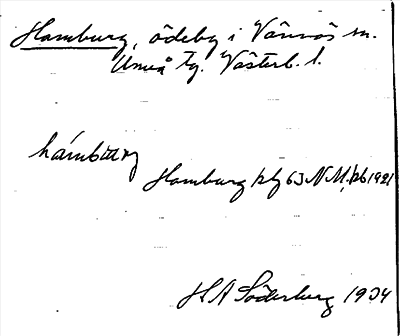 Hamburg, ödeby i Vännäs sn.
Umeå tg. Västerb. l.
hámbarg
Hamburg 63 N.M. 1921
H A Söderberg 1934